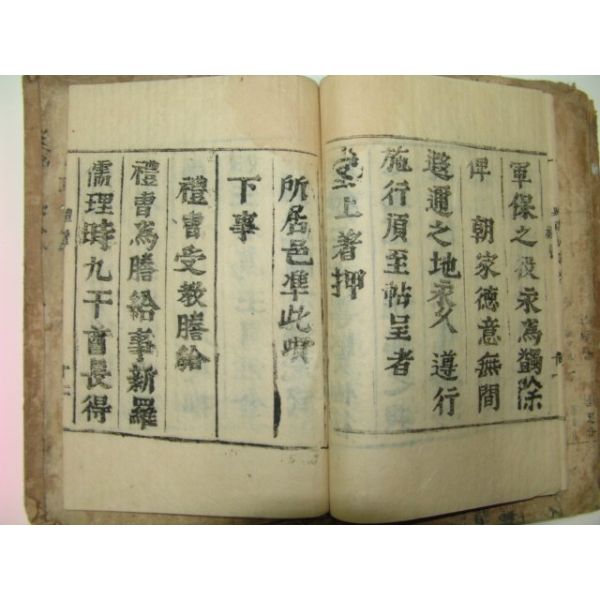 軍保之役永爲蠲除
俾　朝家德意無間
遐邇之地永久遵行
施行須至帖呈者
堂上着押
所居邑準此噴
下事
禮曹受教謄給
禮曹爲謄給事新羅
儒理時九干酋長得